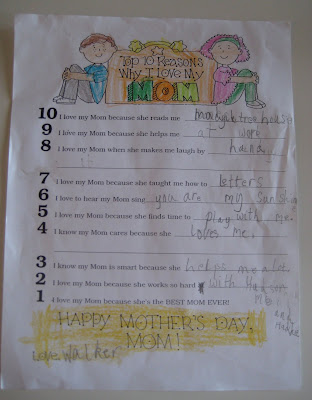 Top 10 Reasons
Why I Love My
MOM
10 I love my Mom because she reads me
9 I love my Mom because she helps me at work
8 I love my Mom when she makes me laugh by
7 I love my Mom because she taught me how to letters
6 I love to hear my Mom sing you are my
5 I love my Mom because she finds time to play with me.
4 I know my Mom cares because she loves me.
3 I know my Mom is smart because she helps me a lot.
2 I love my Mom because she works so hard with
1 I love my Mom because she's the BEST MOM EVER!
HAPPY MOTHER'S DAY,
MOM!
Love Walker